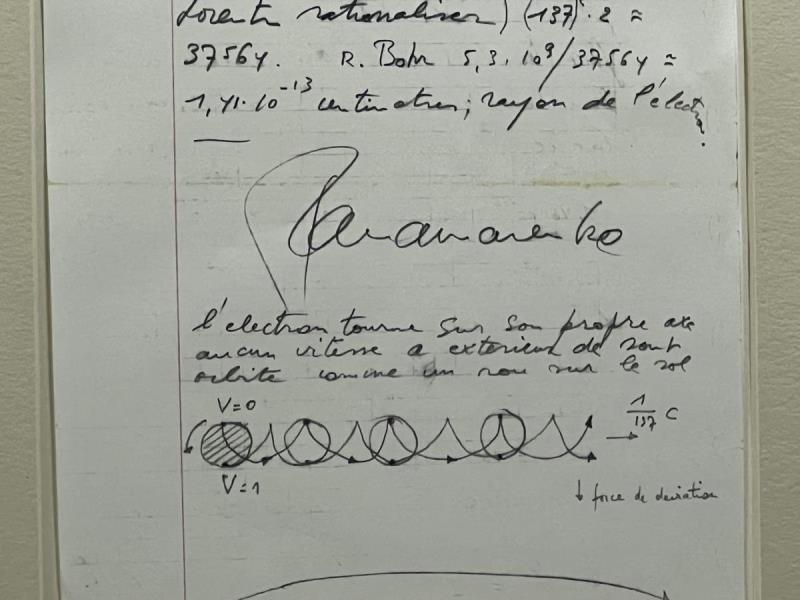 Lorentz rationaliser) (137)·2 ≈
37564. R. Bohr 5,3·10⁹/37564 ≈
1,41·10⁻¹³ centimetres; rayon de l'élect
Panamarenko
l'electron tourne sur son propre axe
aucun vitesse a exterieur de sont
orbite comme un rou sur le sol
V=0
1/137 C
V=1
↓ force de deviation